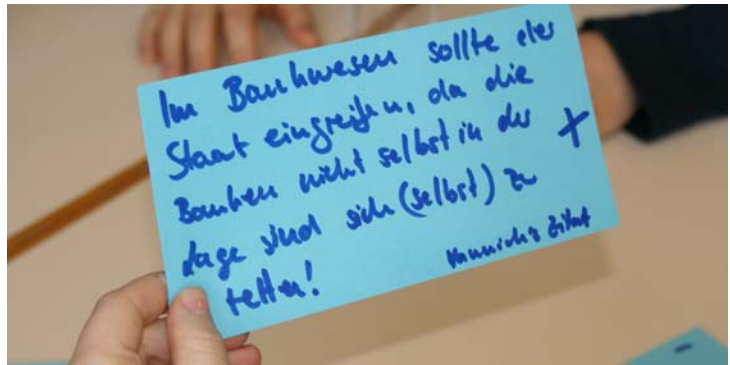 Im Bankwesen sollte der
Staat eingreifen, da die
Banken nicht selbst in der +
Lage sind sich (selbst) zu
retten!